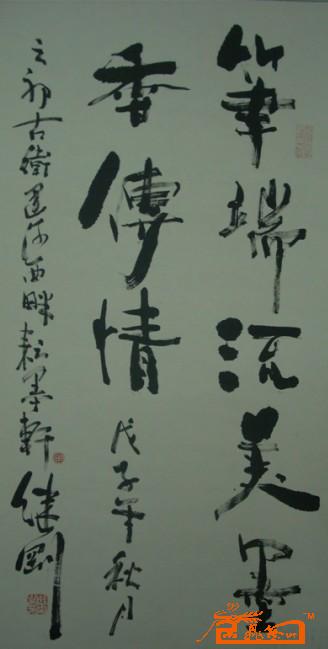 筆端流美墨
香傳情 戊子年秋月
古衛運河西畔耘墨軒 继剛